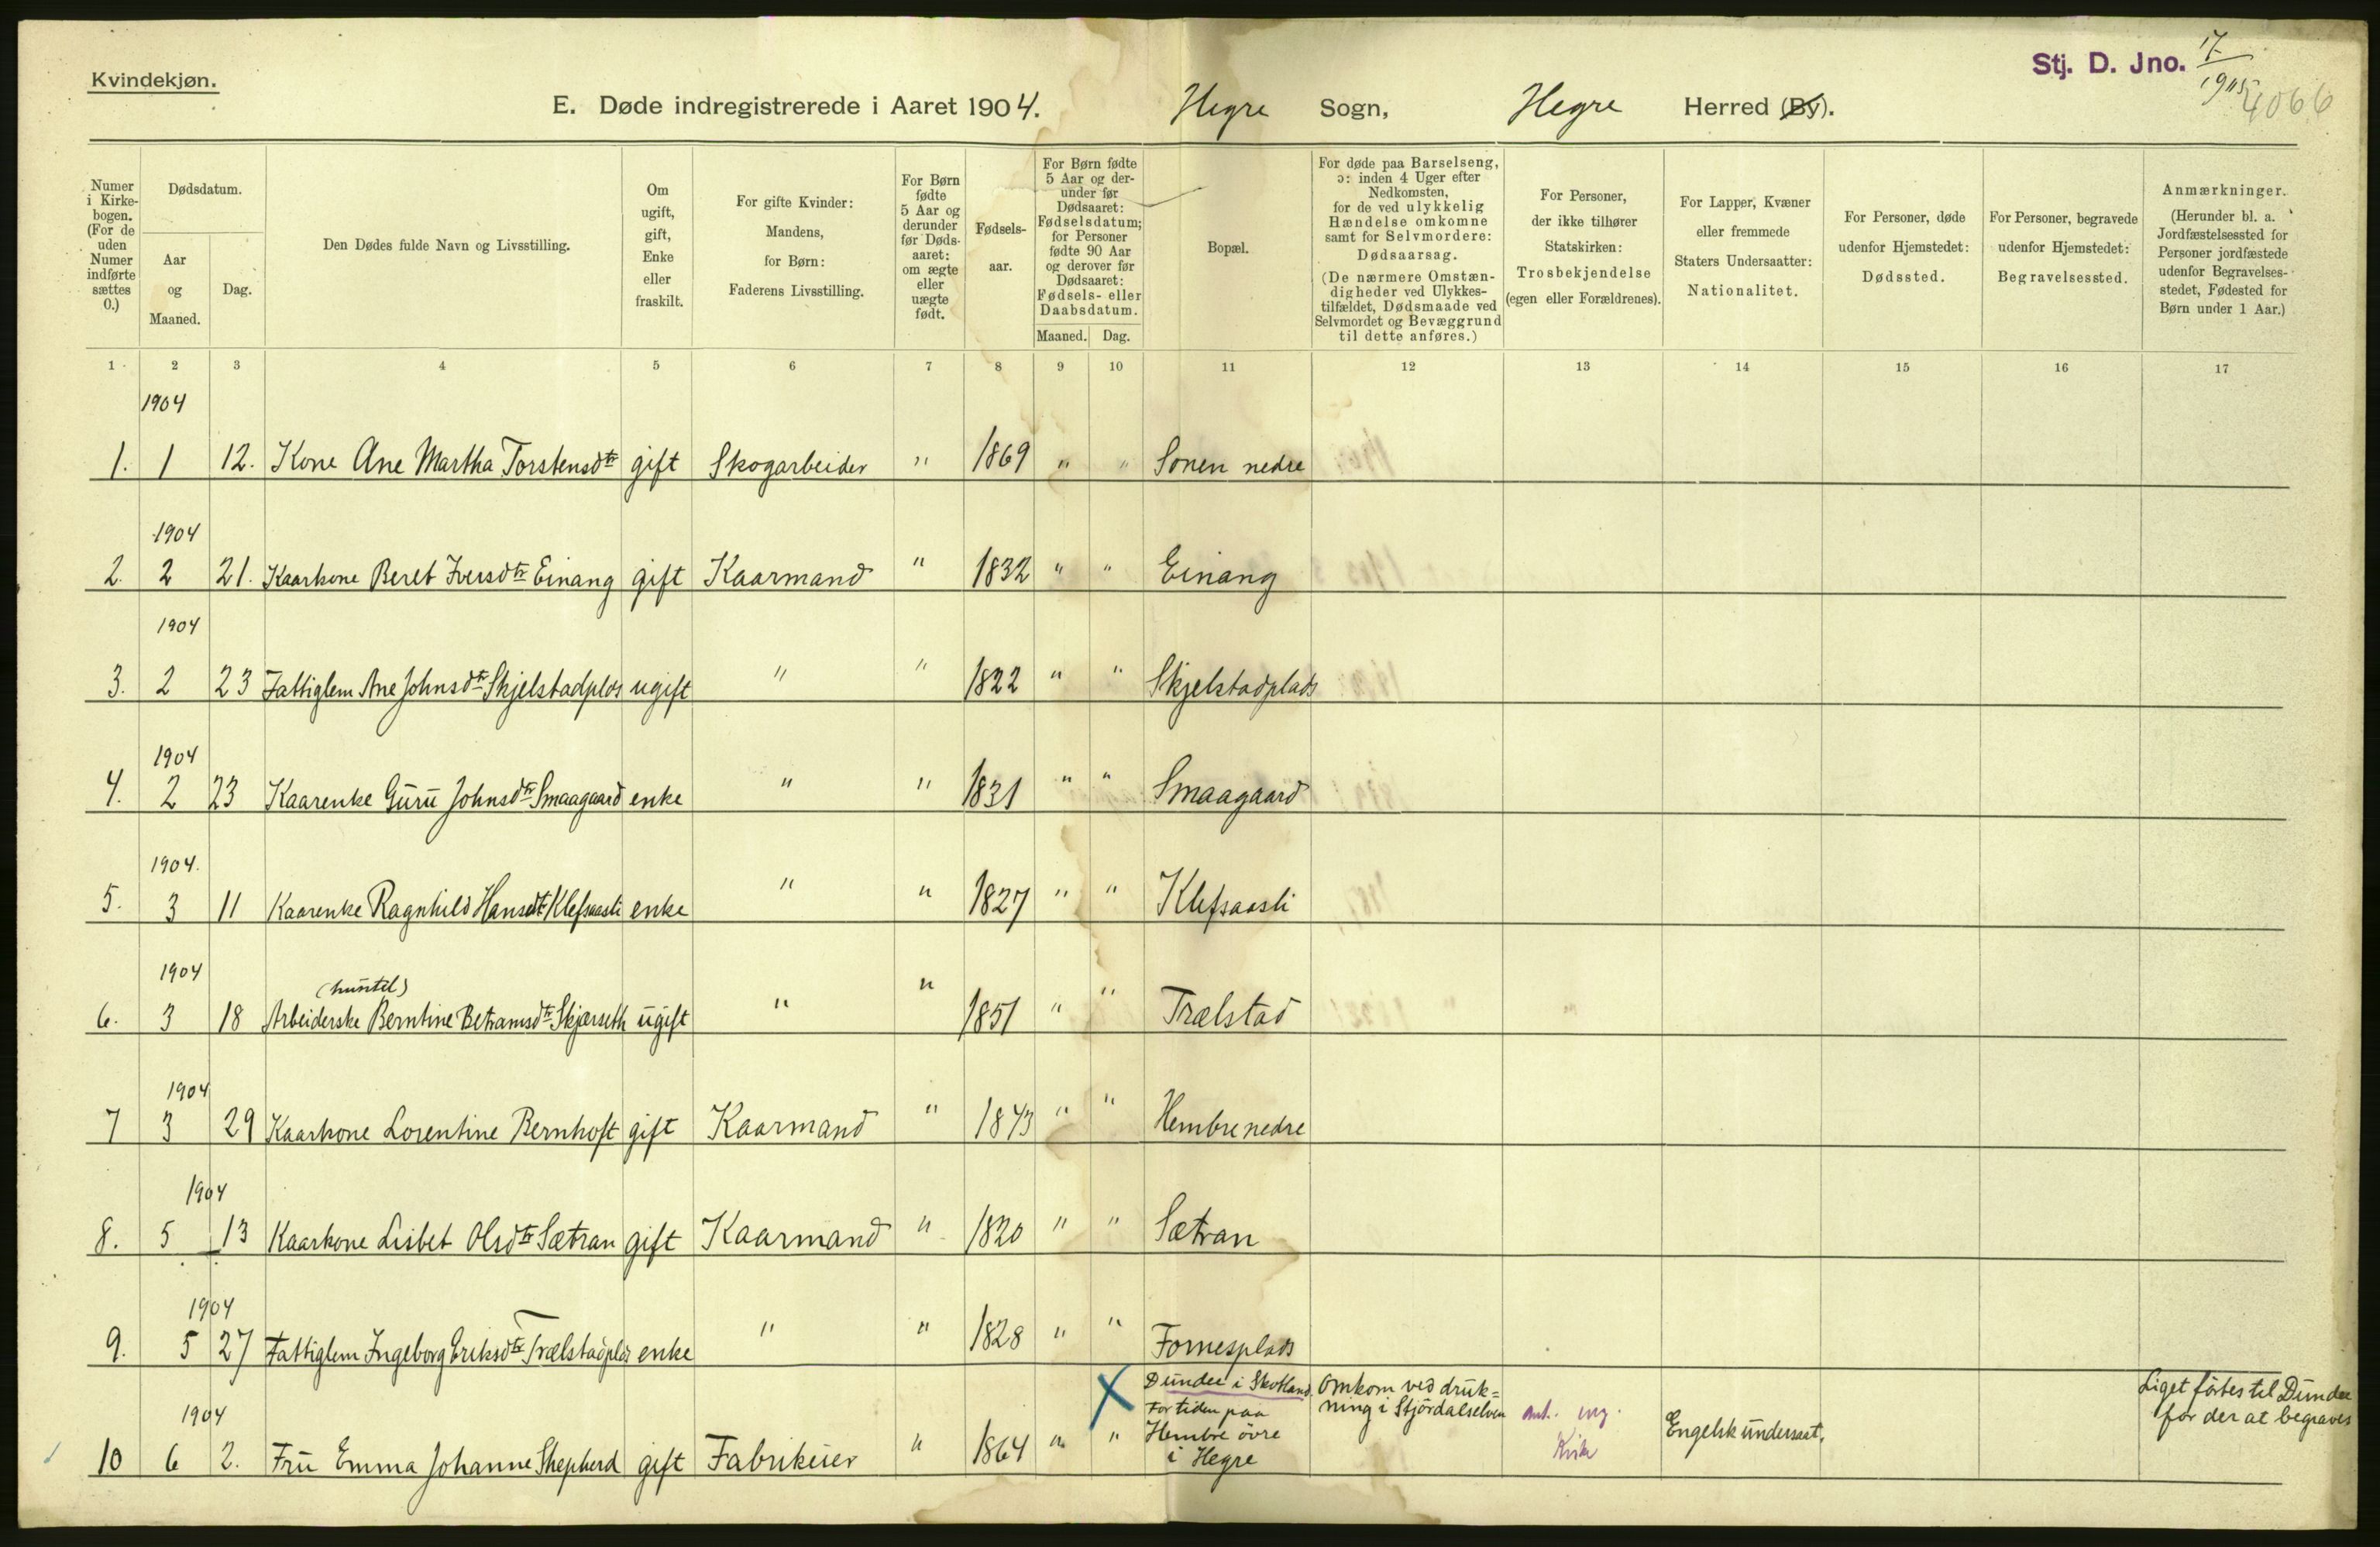 Kvindekjøn.
Stj. D. Jno. 17/1905
4066
E. Døde indregistrerede i Aaret 1904. Hegre Sogn, Hegre Herred (By).
Numer i Kirkebogen. (For de uden Numer indførte sættes 0.)
Dødsdatum.
Aar og Maaned.
Dag.
Den Dødes fulde Navn og Livsstilling.
Om ugift, gift, Enke eller fraskilt.
For gifte Kvinder: Mandens, for Børn: Faderens Livsstilling.
For Børn fødte 5 Aar og derunder før Dødsaaret: om ægte eller uægte født.
Fødselsaar.
For Børn fødte 5 Aar og derunder før Dødsaaret: Fødselsdatum; for Personer fødte 90 Aar og derover før Dødsaaret: Fødsels- eller Daabsdatum.
Maaned. Dag.
Bopæl.
For døde paa Barselseng, ɔ: inden 4 Uger efter Nedkomsten, for de ved ulykkelig Hændelse omkomne samt for Selvmordere: Dødsaarsag.
(De nærmere Omstændigheder ved Ulykkestilfældet, Dødsmaade ved Selvmordet og Bevæggrund til dette anføres.)
For Personer, der ikke tilhører Statskirken: Trosbekjendelse (egen eller Forældrenes).
For Lapper, Kvæner eller fremmede Staters Undersaatter: Nationalitet.
For Personer, døde udenfor Hjemstedet: Dødssted.
For Personer, begravede udenfor Hjemstedet: Begravelsessted.
Anmærkninger. (Herunder bl. a. Jordfæstelsessted for Personer jordfæstede udenfor Begravelsesstedet, Fødested for Børn under 1 Aar.)
1 2 3 4 5 6 7 8 9 10 11 12 13 14 15 16 17
1904
1. 1 12. Kone Ane Martha Torstensdtr gift Skogarbeider " 1869 " " Sonen nedre
1904
2. 2 21. Kaarkone Beret Iversdtr Einang gift Kaarmand " 1832 " " Einang
1904
3. 2 23 Fattiglem Ane Johnsdtr Skjelstadplds ugift " " 1822 " " Skjelstadplads
1904
4. 2 23 Kaarenke Guru Johnsdtr Smaagaard enke " " 1831 " " Smaagaard
1904.
5. 3 11 Kaarenke Ragnhild Hansdtr Klefsaasli enke " " 1827 " " Klefsaasli
1904
(huntel)
6. 3 18 Arbeiderske Berntine Betramsdtr Skjærseth ugift " " 1851 " " Trælstad
1904
7 3 29 Kaarkone Lorentine Bernhoft gift Kaarmand " 1843 " " Hembre nedre
1904
8. 5 13 Kaarkone Lisbet Olsdtr Sætran gift Kaarmand " 1820 " " Sætran
1904
9. 5 27 Fattiglem Ingeborg Eriksdtr Trælstadplds enke " " 1828 " " Fornesplads
1904
10 6 2. Fru Emma Johanne Shepherd gift Fabrikeier " 1864 " "
Dundee i Skotland.
For tiden paa
Hembre övre
i Hegre
Omkom ved druk=
ning i Stjördalselven
ant. eng.
Kirke
Engelsk undersaat.
Liget förtes til Dundee
for der at begraves